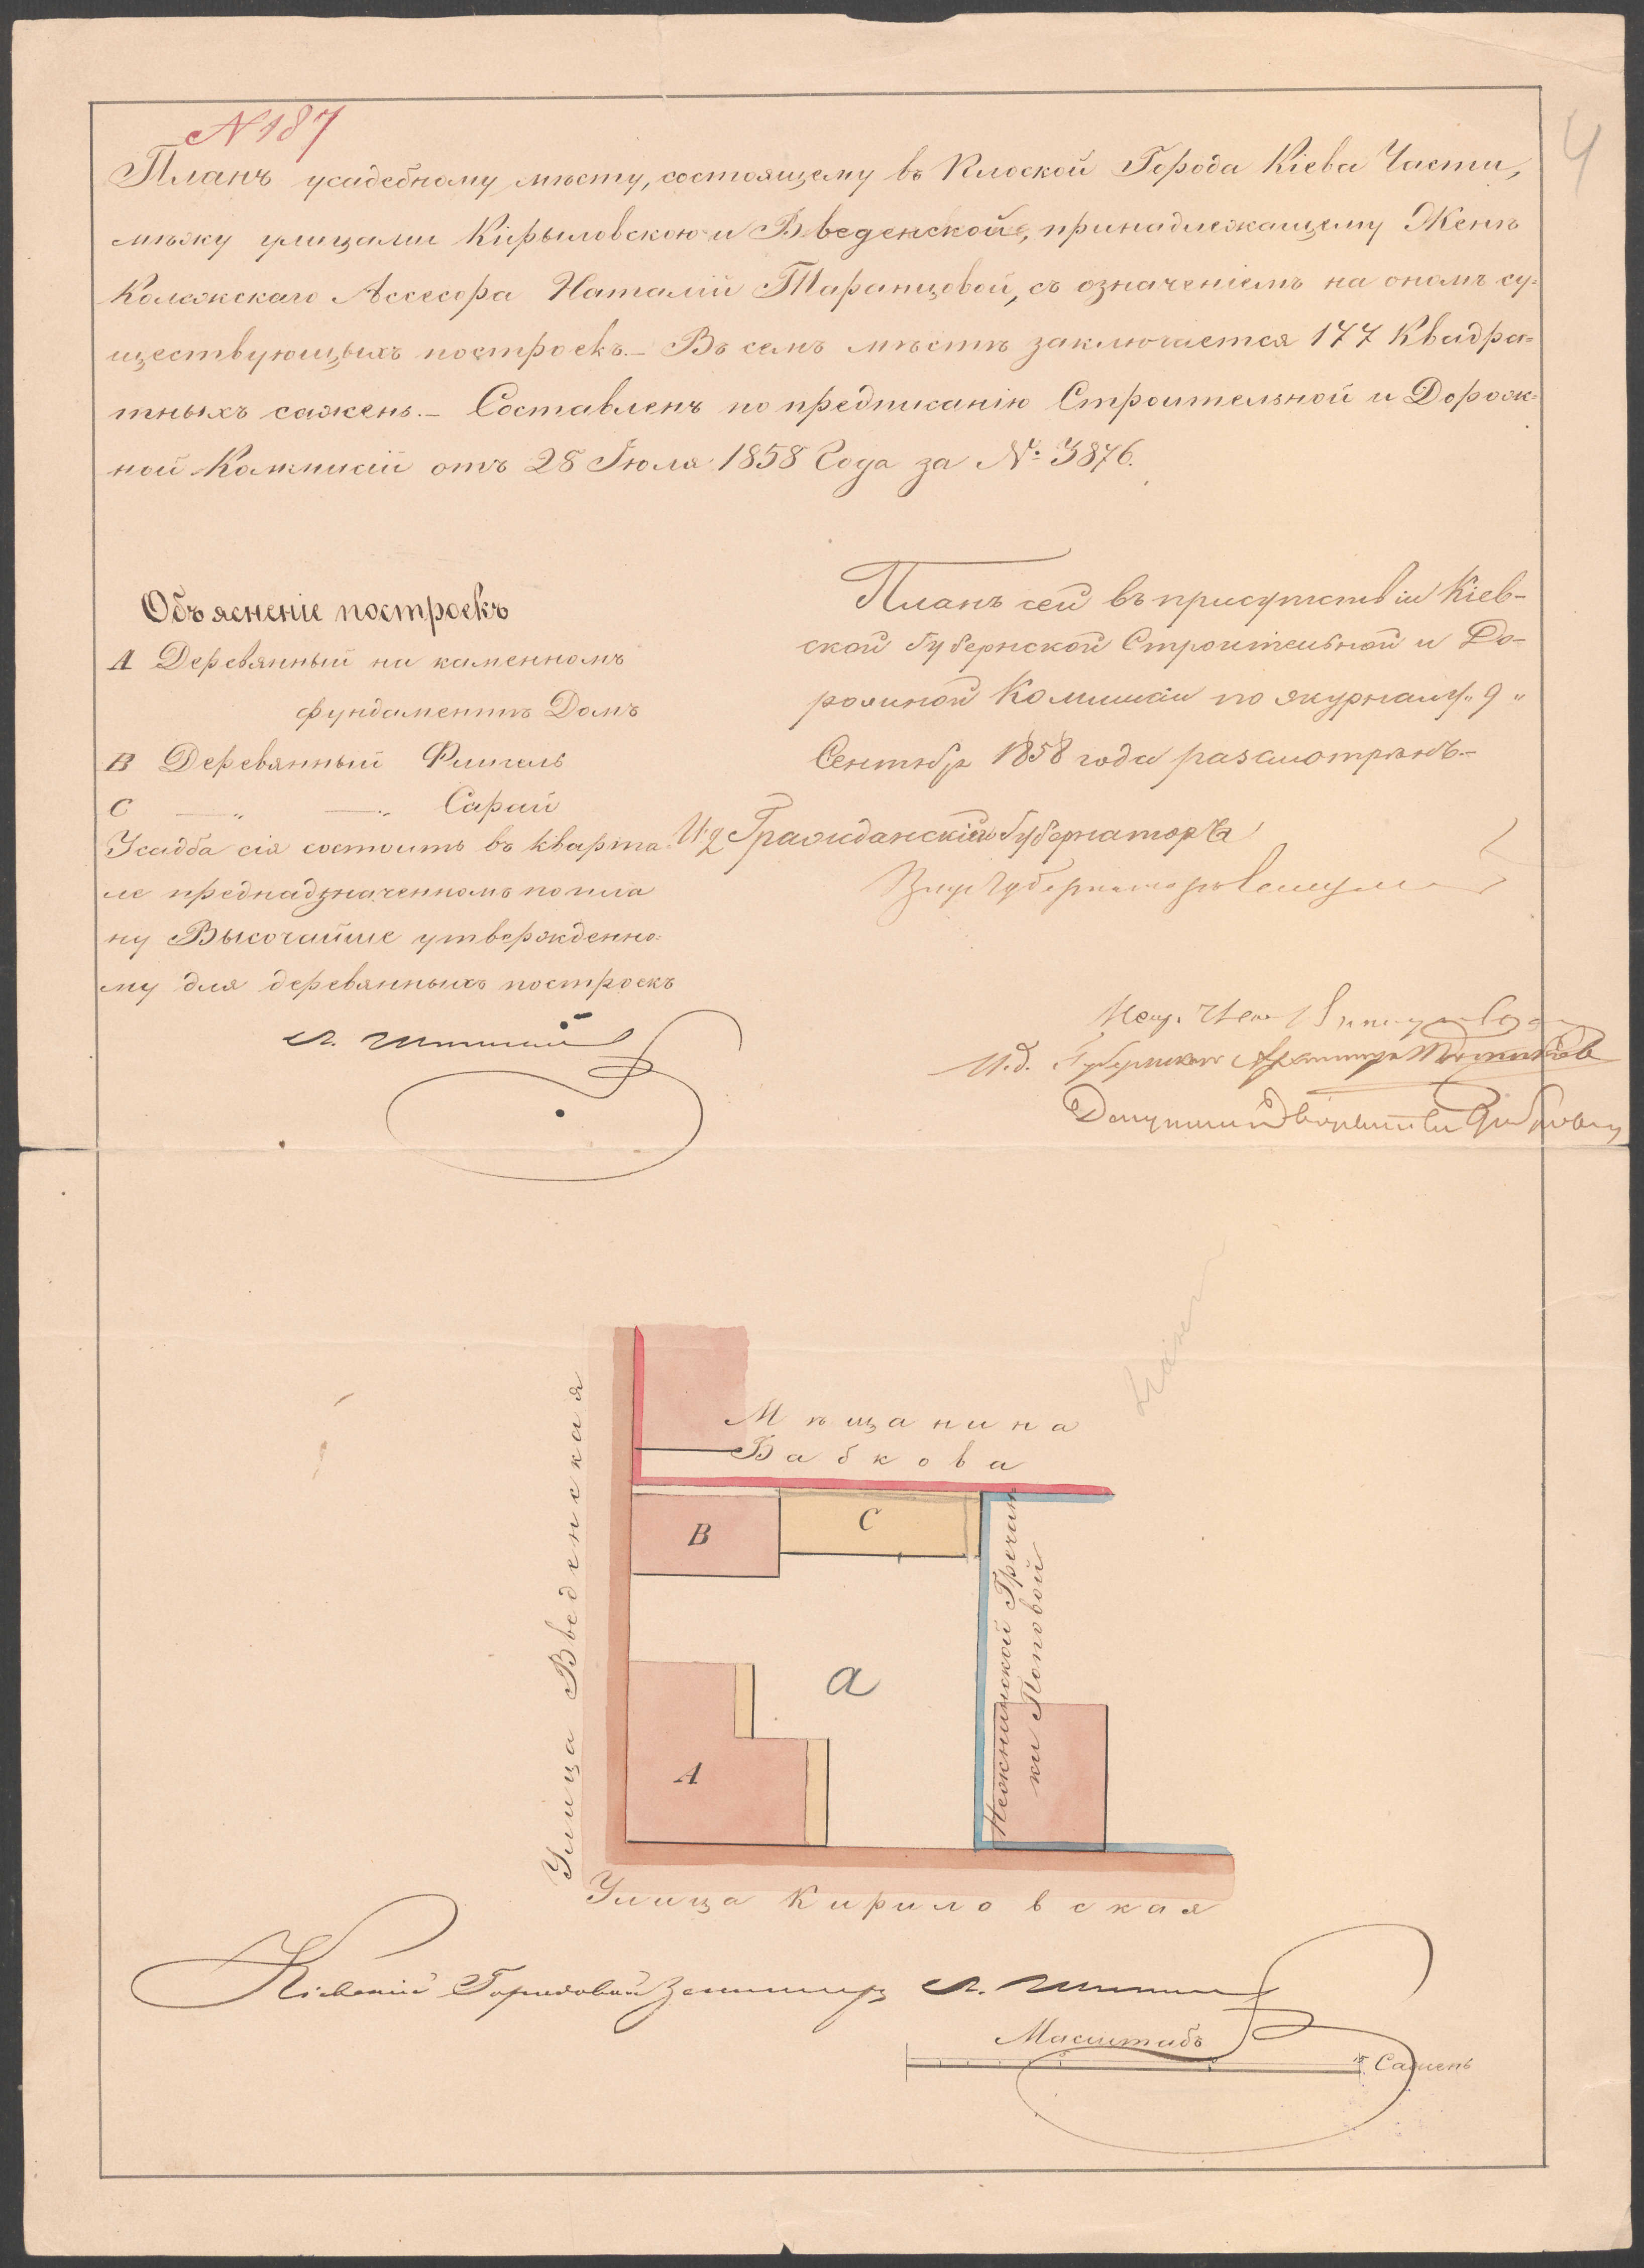 N 187
4
Планъ усадебному мѣсту, состоящему въ Плоской Города Кіева Части,
мѣжу улицами Кирыловскою и Введенской, принадлежащему Женѣ
Колежскаго Ассесора Наталіи Таранцовой, съ означеніемъ на ономъ су-
ществующихъ построекъ.– Въ семъ мѣстѣ заключается 177 Квадра=
тныхъ сажень.– Составленъ по предписанію Строительной и Дорож-
ной Коммисіи отъ 28 Іюля 1858 Года за №. 3876.
Объясненіе построекъ
A Деревянный на каменномъ
фундаментѣ Домъ
B Деревянный Флигель
C — „ — „ Сарай
Усадба сія состоитъ въ кварта-
ле преднадзначенномъ по пла
ну Высочайше утвержденно-
му для деревянныхъ построекъ
Планъ сей въ присутствіи Кіев-
ской Губернской Строительной и До-
рожной Комишіи по журналу „ 9 „
Сентябр 1858 года разсмотрѣнъ.–
Гражданскій Губернаторъ
Вице Губернаторъ
И.д. Губернскаго Архитектора
Депутатъ Дворянства
Мѣщанина
Бабкова
B
C
a
A
Улица Введенская
Нежинской Гречан
ки Поповой
Улица Кириловская
Кіевскій Городовой Землемеръ
Масштабъ
15 Сажень